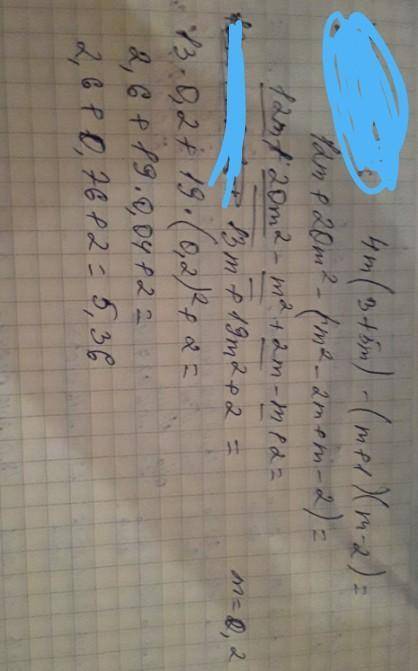 4m(3+5m) - (m+1)(m-2) =
12m + 20m² - (m² - 2m + m - 2) =
12m + 20m² - m² + 2m - m + 2 =
13m + 19m² + 2 =
m = 0,2
13·0,2 + 19·(0,2)² + 2 =
2,6 + 19·0,04 + 2 =
2,6 + 0,76 + 2 = 5,36